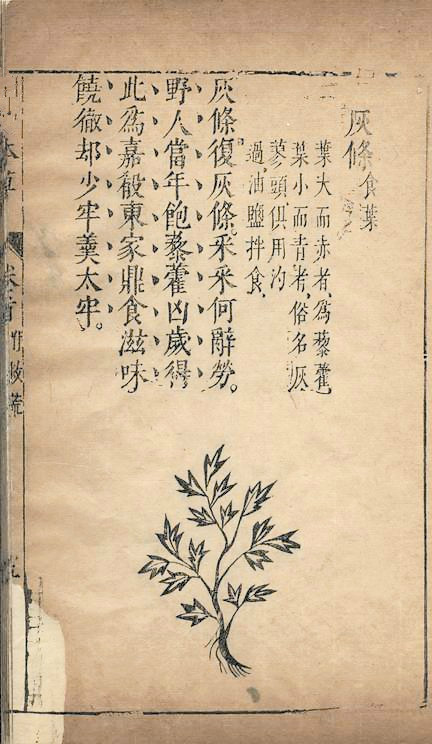 灰條食葉
葉大而赤者、為藜藿、
葉小而青者、俗名灰
蓼頭、俱用灼
過、油鹽拌食、
灰條復灰條。采采何辭勞。
野人當年飽藜藿凶歲得
此為嘉殽東家鼎食滋味
饒徹却少牢羹太牢。
本草
卷首
野菜蔬